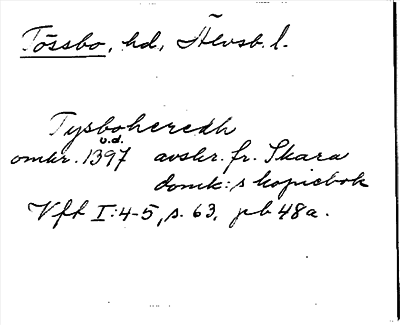 Tössbo, hd, Älvsb. l.
Tysboheredh
u.d.
omkr. 1397 avskr. fr. Skara
domk:s kopiebok
Vft I:4-5, s. 63, pb 48a.